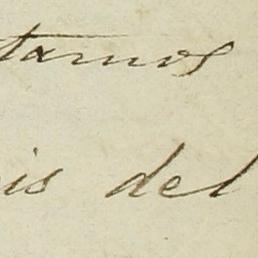 tamos
is del